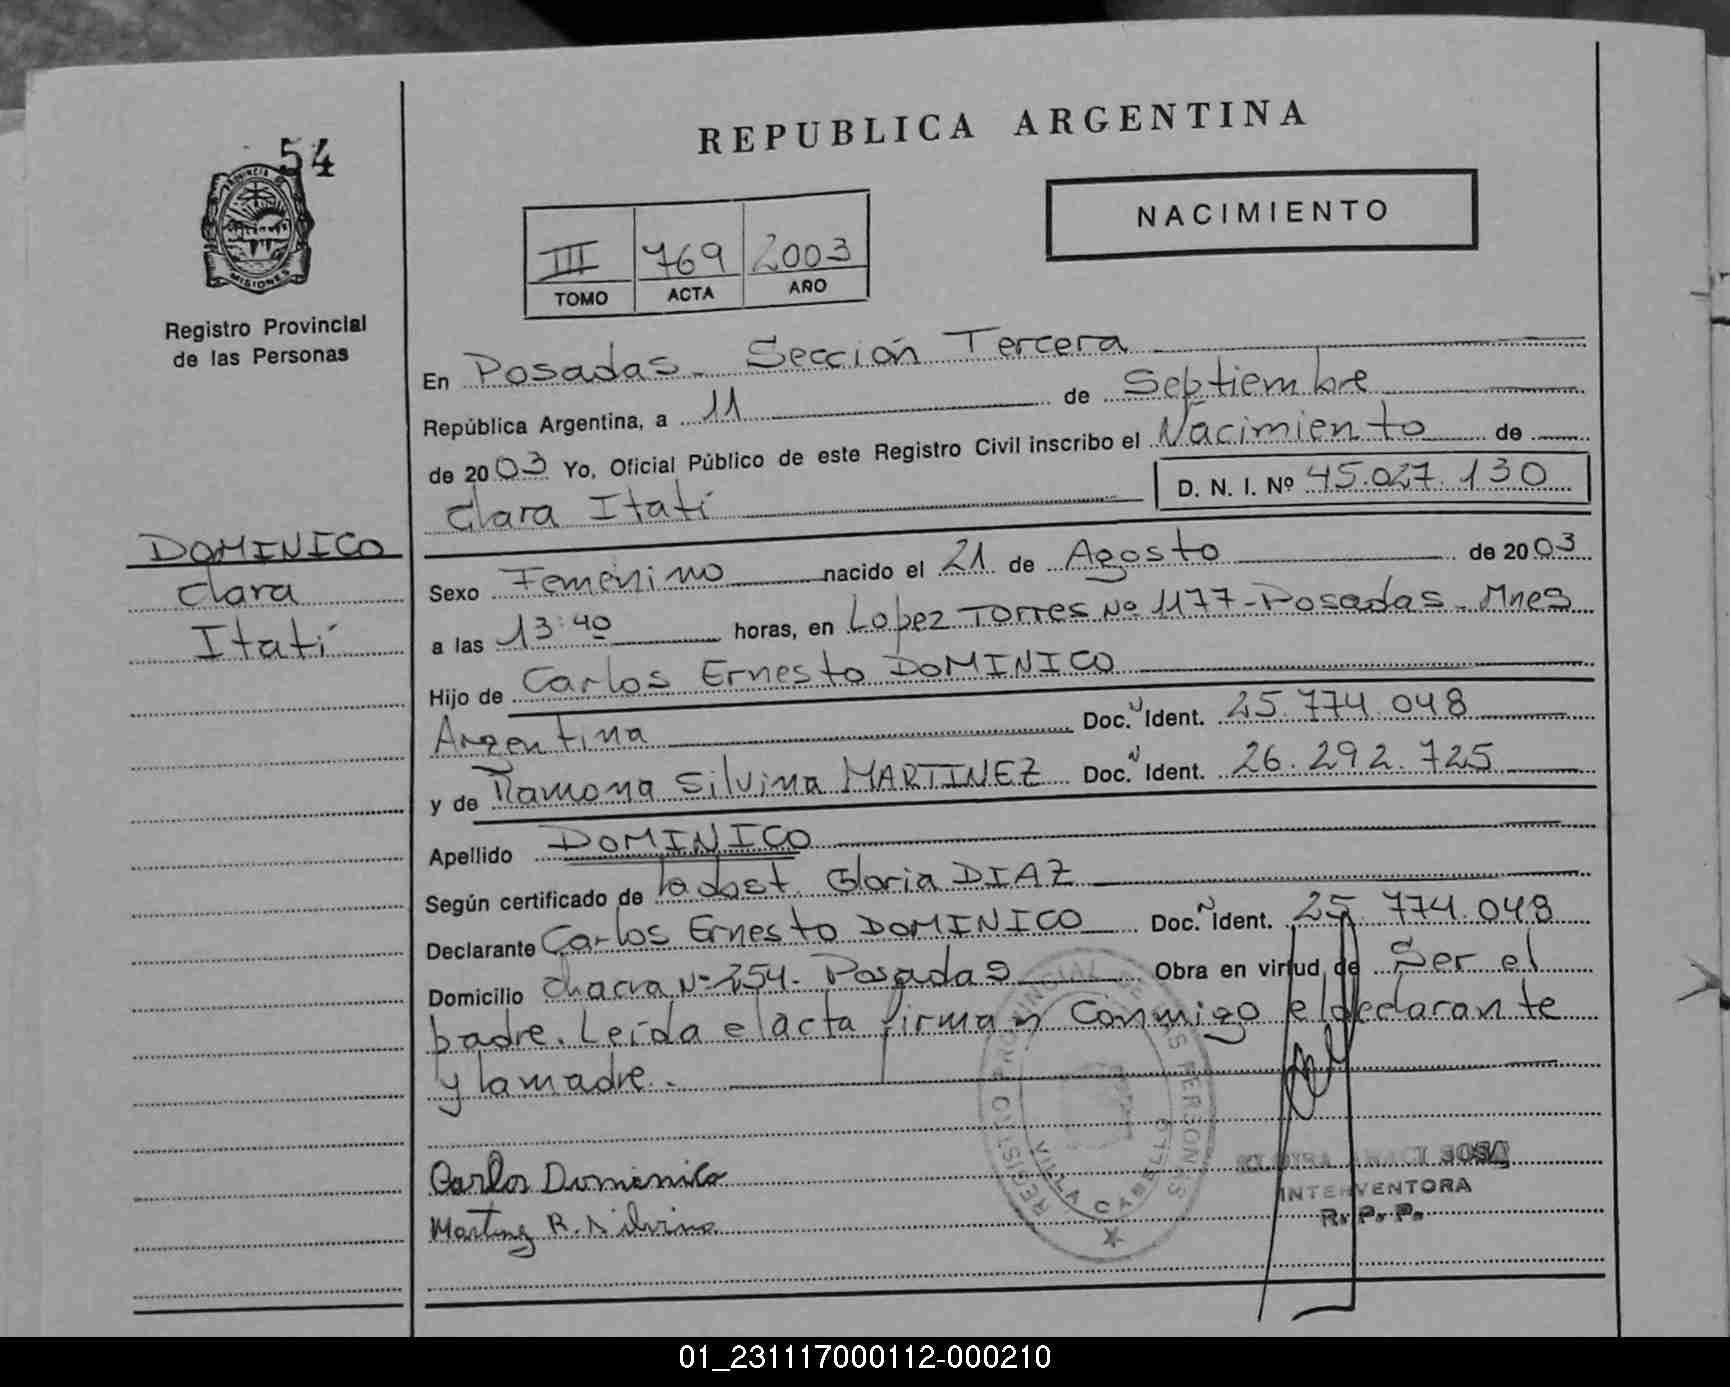 54
PROVINCIA DE
MISIONES
Registro Provincial
de las Personas
REPUBLICA ARGENTINA
NACIMIENTO
III 769 2003
TOMO ACTA AÑO
En Posadas - Sección Tercera
República Argentina, a 11 de Septiembre
de 2003 Yo, Oficial Público de este Registro Civil inscribo el Nacimiento de
Clara Itatí D. N. I. Nº 45.027.130
DOMINICO
Clara
Itatí
Sexo Femenino nacido el 21 de Agosto de 2003
a las 13:40 horas, en Lopez Torres Nº 1177 - Posadas - Mnes
Hijo de Carlos Ernesto DOMINICO
Argentina Doc. N Ident. 25.774.048
y de Ramona Silvina MARTINEZ Doc. N Ident. 26.292.725
Apellido DOMINICO
Según certificado de la obst. Gloria DIAZ
Declarante Carlos Ernesto DOMINICO Doc. N Ident. 25.774.048
Domicilio Chacra Nº 254 - Posadas Obra en virtud de Ser el
padre. Leída el acta firman Conmigo el declarante
y la madre. -
Carlos Dominico
Martinez R. Silvina
REGISTRO PROVINCIAL DE LAS PERSONAS
VILLA CABELLO
SOSA
INTERVENTORA
R. P. P.
01_231117000112-000210